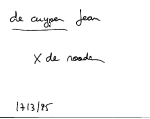 de cuyper Jean
X de roader
1713/95